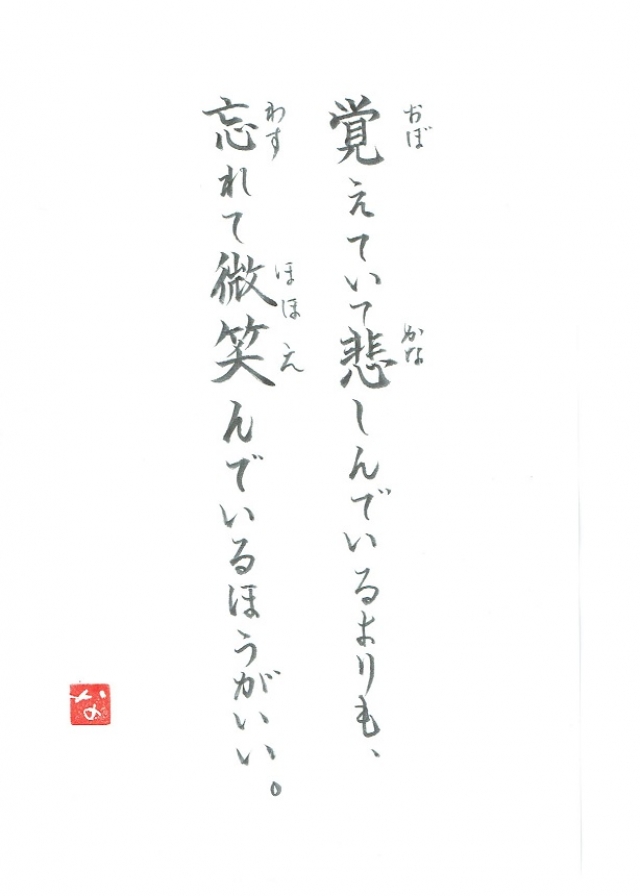 覚えていて悲しんでいるよりも、
おぼ
かな
忘れて微笑んでいるほうがいい。
わす
ほほえ
な